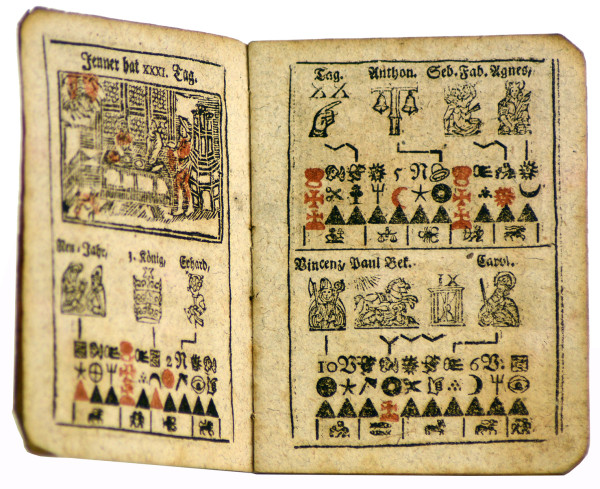 Jenner hat XXXI. Tag.
Neu-Jahr, 3. König, Erhard,
2 N
Tag. Anthon. Seb. Fab. Agnes,
X X
5 N
Vincenz, Paul Bek. Carol.
IX
10 V 6 V.